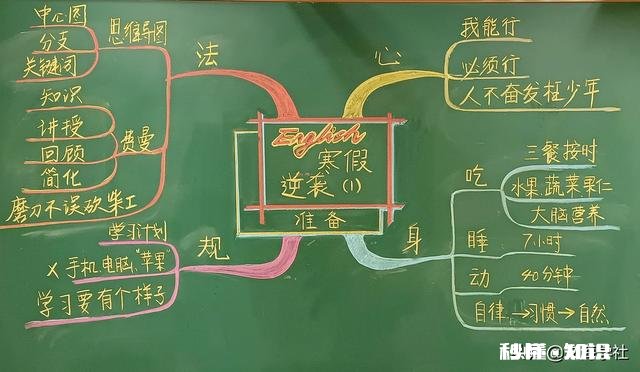 English
寒假
逆袭(1)
准备
法
思维导图
中心图
分支
关键词
费曼
知识
讲授
回顾
简化
磨刀不误砍柴工
心
我能行
必须行
人不奋发枉少年
身
吃
三餐按时
水果.蔬菜果仁
大脑营养
睡
7小时
动
40分钟
自律→习惯→自然
规
学习计划
×手机.电脑."苹果"
学习要有个样子
秒懂 知识